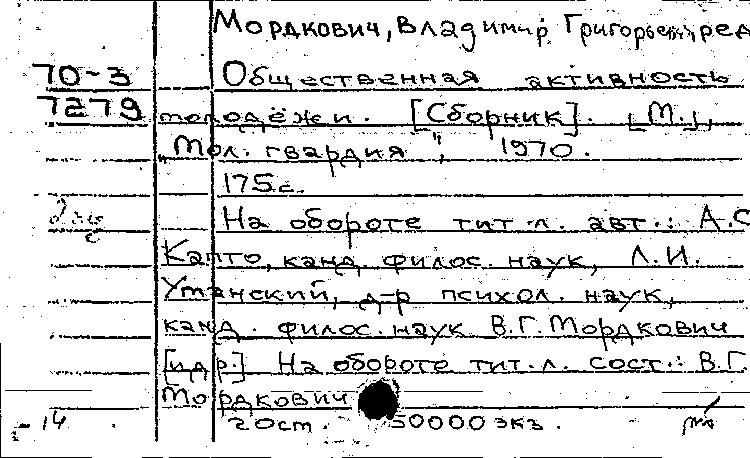 Мордкович, Владимир Григорьевич, ред
70-3 Общественная активность
7279 молодёжи. [Сборник]. [М.],
"Мол. гвардия", 1970.
175 с.
На обороте тит. л. авт.: А.С
Капто, канд. филос. наук, Л.И.
Уманский, д-р психол. наук,
канд. филос. наук В.Г. Мордкович
[и др.] На обороте тит. л. сост.: В.Г.
Мордкович
14 20 см. 50000 экз.